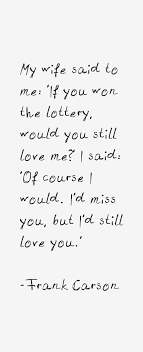 My wife said to
me: 'If you won
the lottery,
would you still
love me?' I said:
'Of course I
would. I'd miss
you, but I'd still
love you.'
-Frank Carson